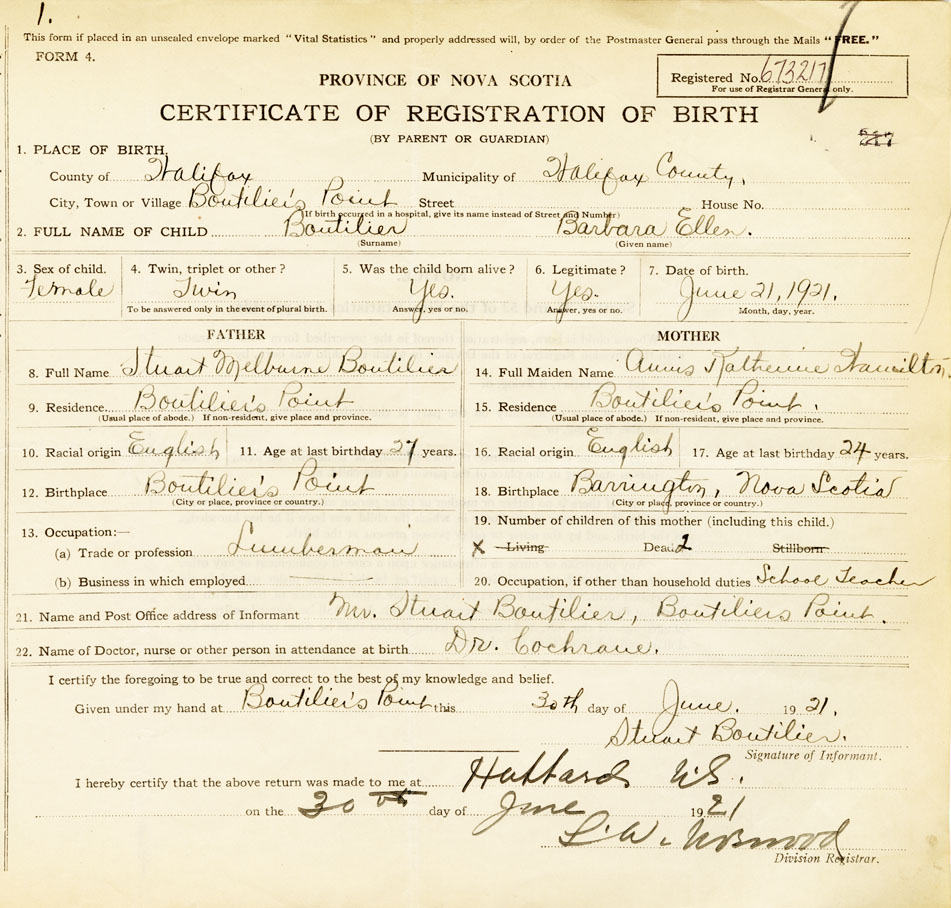 1.
This form if placed in an unsealed envelope marked "Vital Statistics" and properly addressed will, by order of the Postmaster General pass through the Mails "FREE."
FORM 4.
PROVINCE OF NOVA SCOTIA
Registered No. 673217
For use of Registrar General only.
CERTIFICATE OF REGISTRATION OF BIRTH
(BY PARENT OR GUARDIAN)
1. PLACE OF BIRTH.
County of Halifax Municipality of Halifax County.
City, Town or Village Boutilier's Point Street House No.
(If birth occurred in a hospital, give its name instead of Street and Number)
2. FULL NAME OF CHILD Boutilier Barbara Ellen.
(Surname) (Given name)
3. Sex of child. 4. Twin, triplet or other? 5. Was the child born alive? 6. Legitimate? 7. Date of birth.
Female Twin Yes. Yes. June 21, 1921.
To be answered only in the event of plural birth. Answer, yes or no. Answer, yes or no. Month, day, year.
FATHER MOTHER
8. Full Name Stuart Melburne Boutilier 14. Full Maiden Name Annis Katherine Hamilton.
9. Residence Boutilier's Point 15. Residence Boutilier's Point.
(Usual place of abode.) If non-resident, give place and province. (Usual place of abode.) If non-resident, give place and province.
10. Racial origin English 11. Age at last birthday 27 years. 16. Racial origin English 17. Age at last birthday 24 years.
12. Birthplace Boutilier's Point 18. Birthplace Barrington, Nova Scotia
(City or place, province or country.) (City or place, province or country.)
13. Occupation:— 19. Number of children of this mother (including this child.)
(a) Trade or profession Lumberman X Living Dead 2 Stillborn
(b) Business in which employed 20. Occupation, if other than household duties School Teacher
21. Name and Post Office address of Informant Mr. Stuart Boutilier, Boutiliers Point.
22. Name of Doctor, nurse or other person in attendance at birth Dr. Cochrane.
I certify the foregoing to be true and correct to the best of my knowledge and belief.
Given under my hand at Boutilier's Point this 30th day of June. 1921.
Stuart Boutilier.
Signature of Informant.
I hereby certify that the above return was made to me at Hubbards N.S.
on the 30th day of June 1921
L. W. Norwood
Division Registrar.